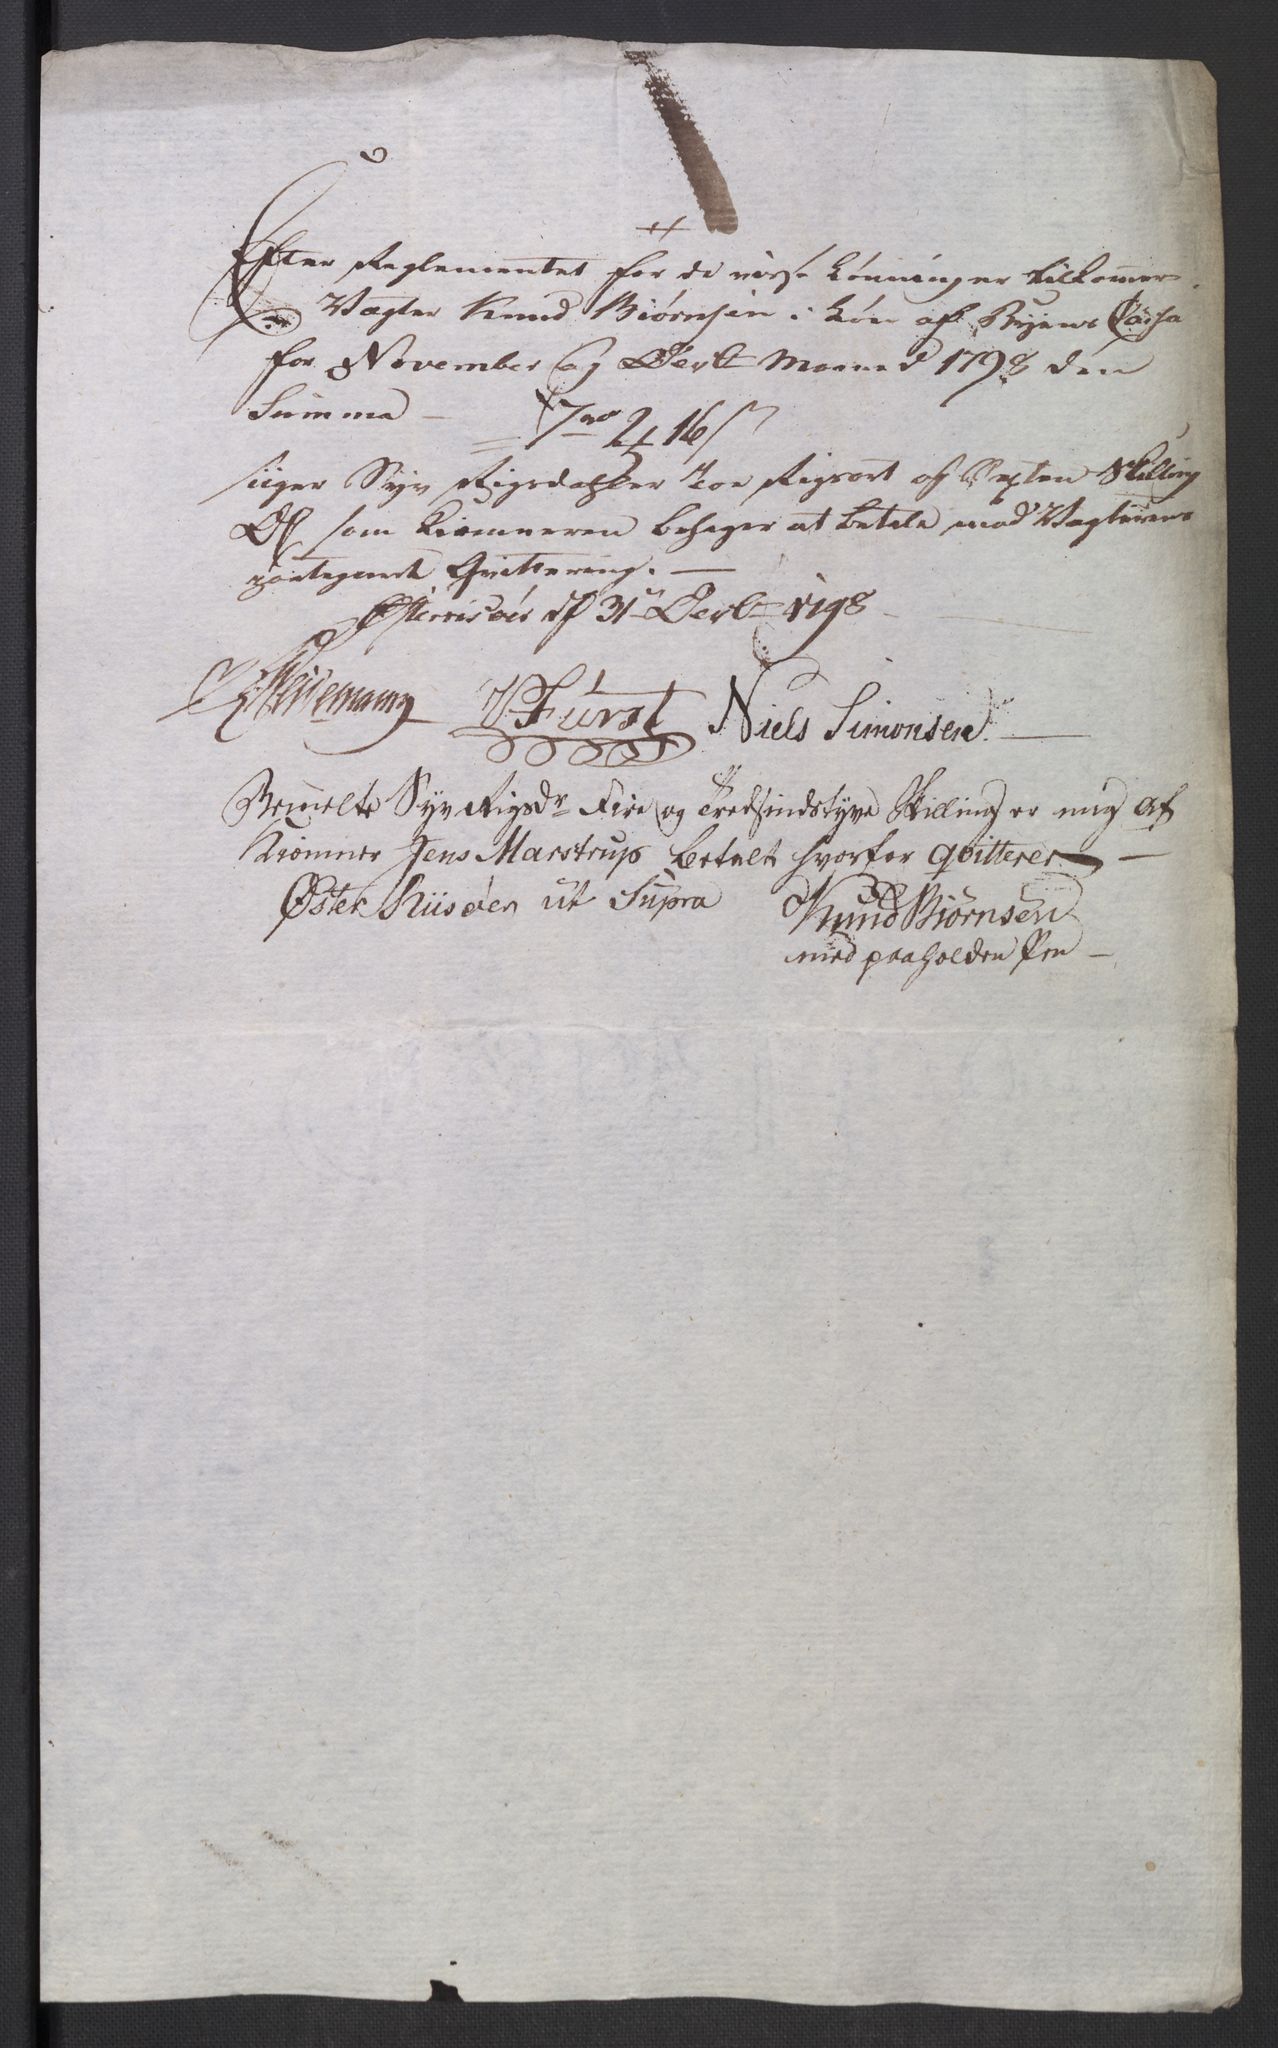 Efter Reglementet for de visse Lønninger tilkommer
Vægter Knud Biørnsen i Løn af Byens Cassa
for November og Decbr Maaned 1798 den
Summa — 7 rd 2 # 16 s
siiger Syv Rigsdahler Toe Rigsort og Sexten Skilling
som Kiemneren behager at betale mod Vægterens
Qvittering. —
Østerriisøer d 31 Decbr 1798
J Fürst Niels Simonsen
Bemelte Syv Rigsdr Fire og Tredsindstyve Skilling er mig af
Kiemner Jens Marstrup betalt hvorfor qvitterer —
Øster Riisøer ut Supra Knud Biørnsen
med paaholden Pen —